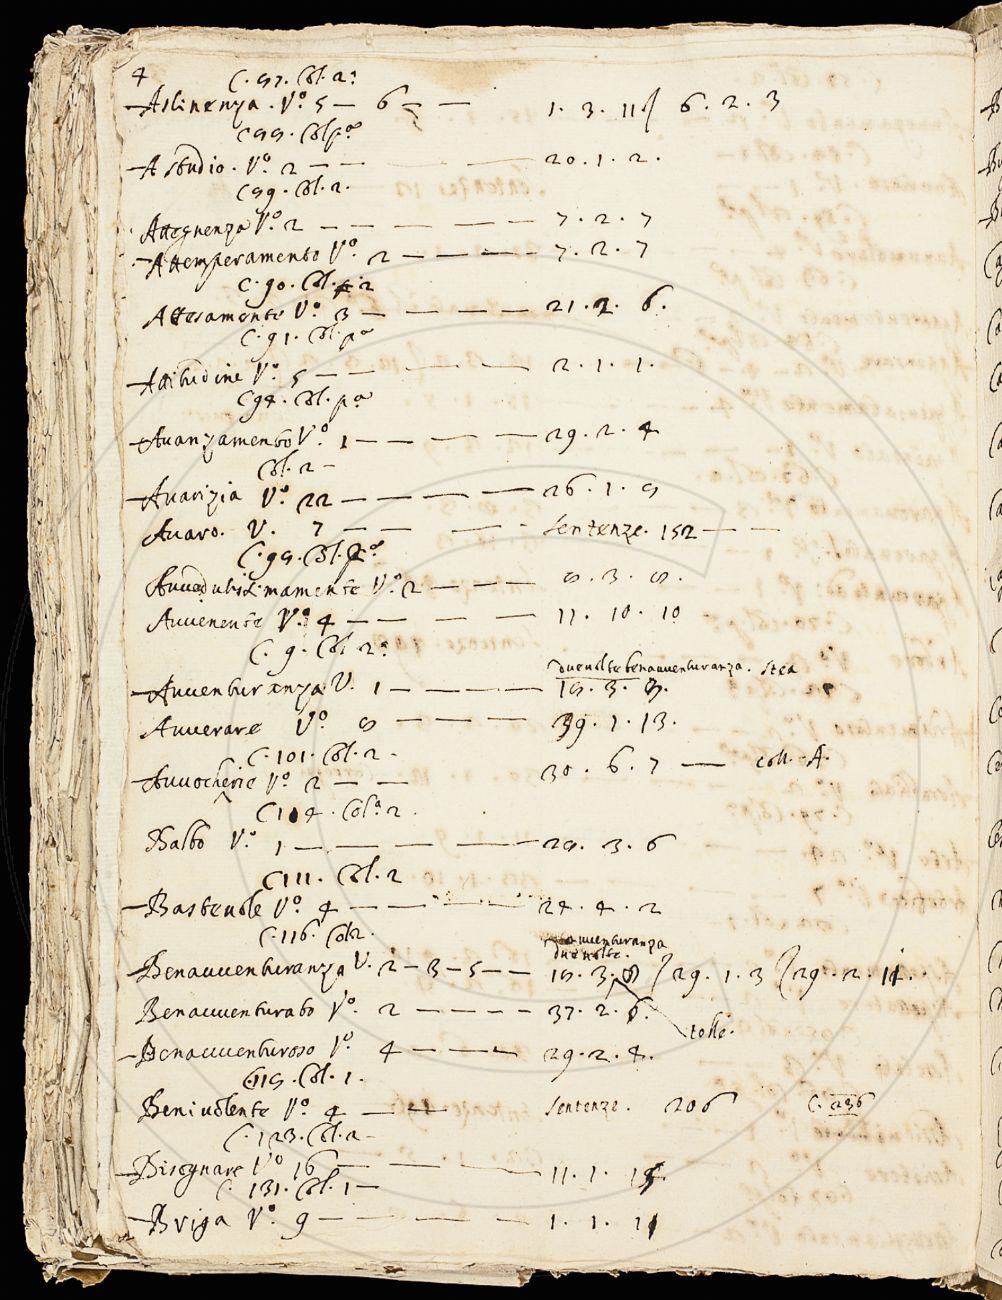 4
C. 87. Col. 2a
Astinenza. Vo. 5 — 6 — 1. 3. 11 / 6. 2. 3
C 88. Col pa
Astudio. Vo. 2 — — — — 20. 1. 2.
C 89. Col. 2.
Attegnenza Vo. 2 — — — — — 7. 2. 7
Attemperamento Vo. 2 — — — — 7. 2. 7
C. 90. Col. 2
Attesamente Vo. 3 — — — — 21. 2. 6.
C. 91. Col. pa
Attitudine Vo. 5 — — — — 2. 1. 1.
C 94. Col. pa
Avanzamento Vo. 1 — — — — 29. 2. 4
Col. 2 —
Avarizia Vo. 22 — — — — 26. 1. 8
Avaro. V. 7 — — — — Sentenze. 152 — —
C. 98. Col. pa
Vo. 2 — — — 8. 3. 8.
Avvenente Vo. 4 — — — — 11. 10. 10
C. 9. Col. 2a
due volte benavventuranza. Stea
Avventuranza V. 1 — — — — 18. 3. 8.
Avverare Vo. 8 — — — — 39. 1. 13.
C. 101. Col. 2.
Avvocherie Vo. 2 — — — 30. 6. 7 — coll. A.
C 104. Cola 2.
Balbo Vo. 1 — — — — 28. 3. 6
C 111. Col. 2
Bastevole Vo. 4 — — — — 24. 4. 2
C. 116. Col 2.
avventuranza
due volte.
Benavventuranza V. 2 — 3 — 5 — — 18. 3. 8 / 29. 1. 3 / 29. 2. 11.
Benavventurato Vo. 2 — — — — 37. 2. 6.
tolle.
Benavventuroso Vo. 4 — — — 29. 2. 4.
C 118. Col. 1.
Benivolente Vo. 4 — — Sentenze. 206 C. 236
C. 123. Col. 2 —
Bisognare Vo 16 — — — — 11. 1.
C. 131. Col. 1 —
Briga Vo. 9 — — — — 1. 1. 11